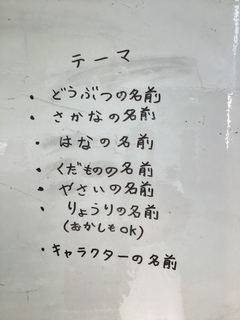 テーマ
・どうぶつの名前
・さかなの名前
・はなの名前
・くだものの名前
・やさいの名前
・りょうりの名前
(おかしもOK)
・キャラクターの名前